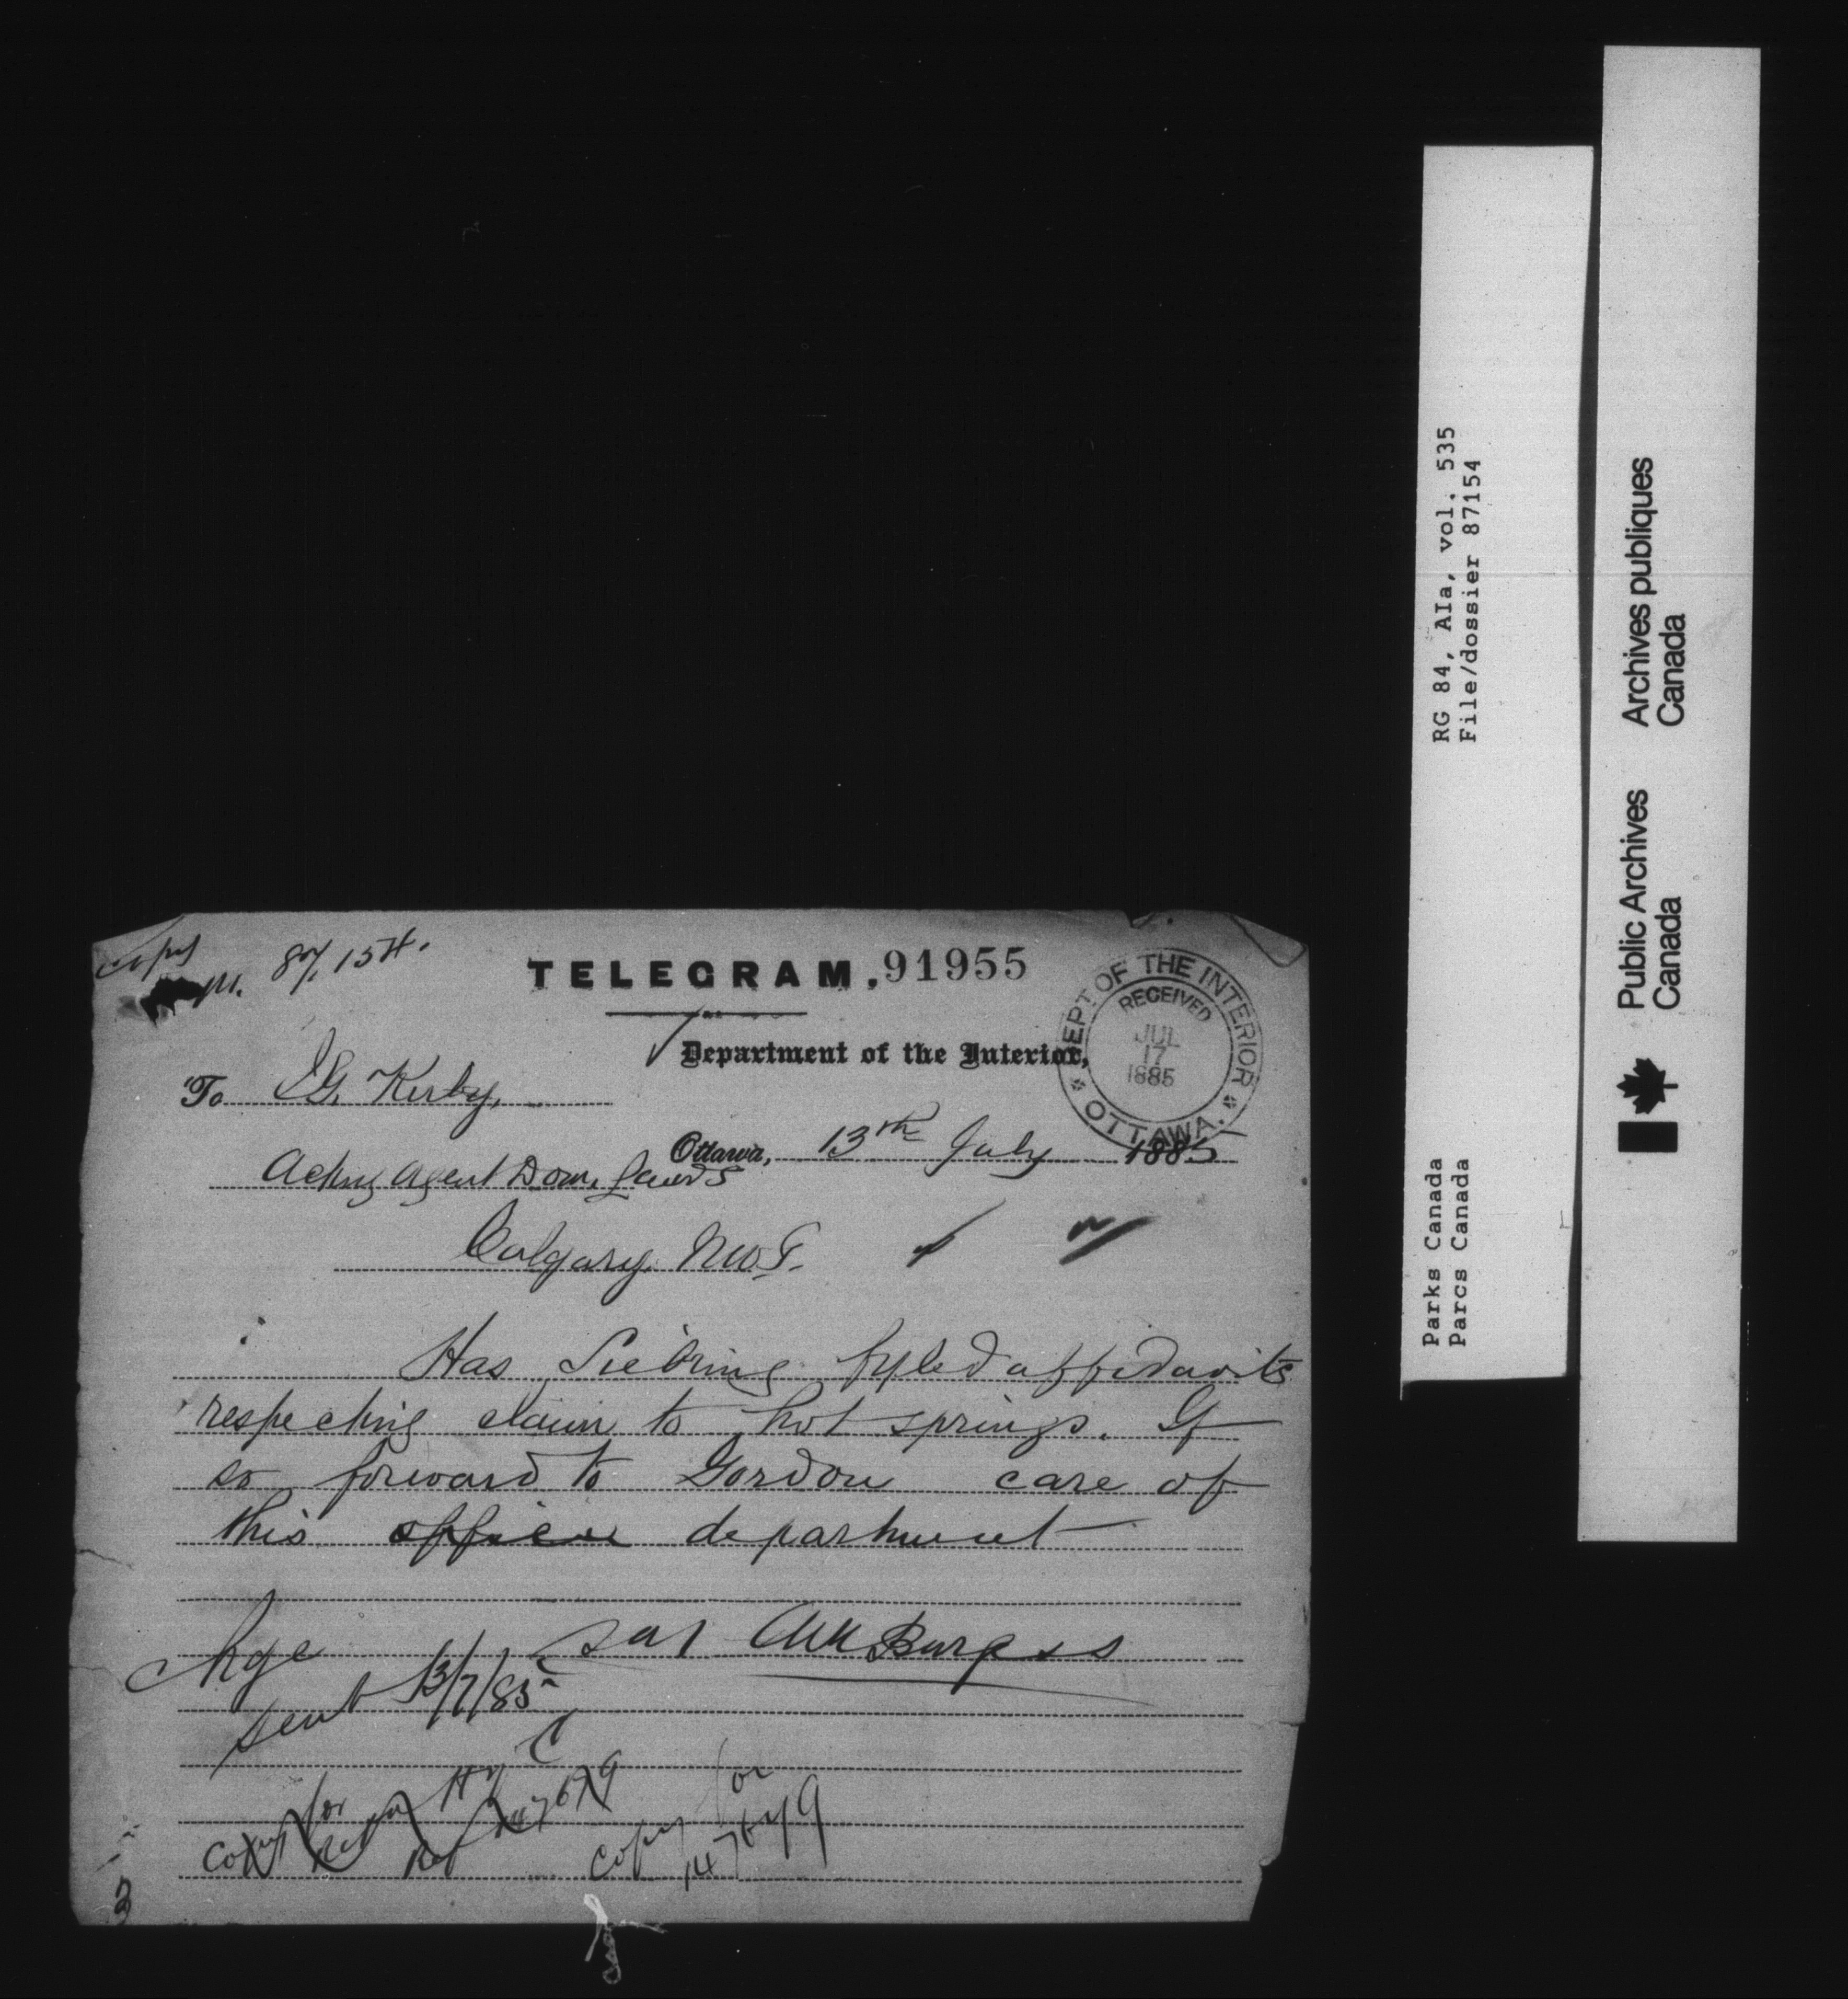 Copy
M. 87,154.
TELEGRAM. 91955
DEPT OF THE INTERIOR
RECEIVED
JUL
17
1885
OTTAWA.
Department of the Interior,
To J.G. Kirby,
Ottawa, 13th July 1885
Acting Agent Dom. Lands
Calgary. N.W.T.
Has Siebring fyled affidavits
respecting claim to hot springs. If
so forward to Gordon care of
this office department
Chge
sgd AM Burgess
sent 13/7/85
Copy for
Ref 147679
Copy for
147679
RG 84, AIa, vol. 535
File/dossier 87154
Parks Canada
Parcs Canada
Public Archives
Canada
Archives publiques
Canada